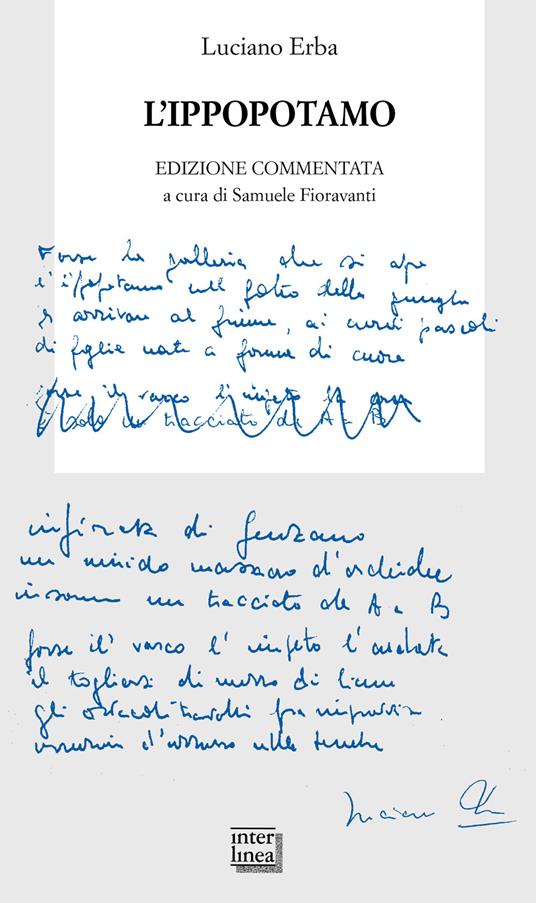 Luciano Erba
L'IPPOPOTAMO
EDIZIONE COMMENTATA
a cura di Samuele Fioravanti
Forse la galleria che si apre
l'ippopotamo nel folto della giungla
per arrivare al fiume, ai curvi pascoli
di foglie nate a forma di cuore
forse il varco l'impeto la
solo un tracciato da A a B
infiorata di Genzano
un massacro d'orchidee
insomma un tracciato da A a B
forse il varco l'impeto l'
il togliersi di mezzo di liane
gli ostacoli
nelle tenebre
Luciano
inter
linea